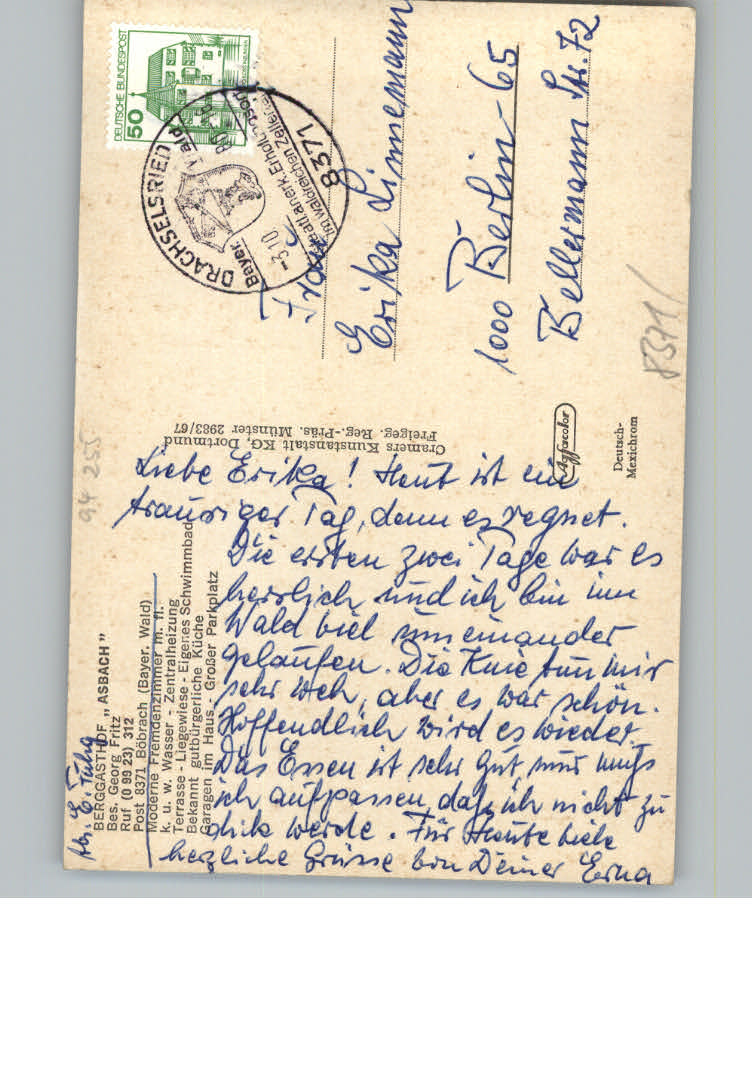 Liebe Erika! Heut ist ein
trauriger Tag, denn es regnet.
Die ersten zwei Tage war es
herrlich und ich bin im
Wald viel umeinander
gelaufen. Die Knie tun mir
sehr weh, aber es war schön.
Hoffendlich wird es wieder.
Das Essen ist sehr gut, nur muß
ich aufpassen, daß ich nicht zu
dick werde. Für Heute viele
herzliche Grüsse von Deiner Erna
Abs. E. Führ
BERGGASTHOF „ASBACH"
Bes. Georg Fritz
Ruf (0 99 23) 312
Post 8371 Böbrach (Bayer. Wald)
Moderne Fremdenzimmer m. fl.
k. u. w. Wasser - Zentralheizung
Terrasse - Liegewiese - Eigenes Schwimmbad
Bekannt gutbürgerliche Küche
Garagen im Haus - Großer Parkplatz
Cramers Kunstanstalt KG, Dortmund
Freigeg. Reg.-Präs. Münster 2983/67
Agfacolor
Deutsch-
Mexichrom
DEUTSCHE BUNDESPOST
50
DRACHSELSRIED
Bayer. Wald
-3.10
Staatl. anerk. Erholungsort
im waldreichen Zellertal
8371
Frau
Erika Linnemann
1000 Berlin-65
Bellermann Str. 72
8371/
94 255